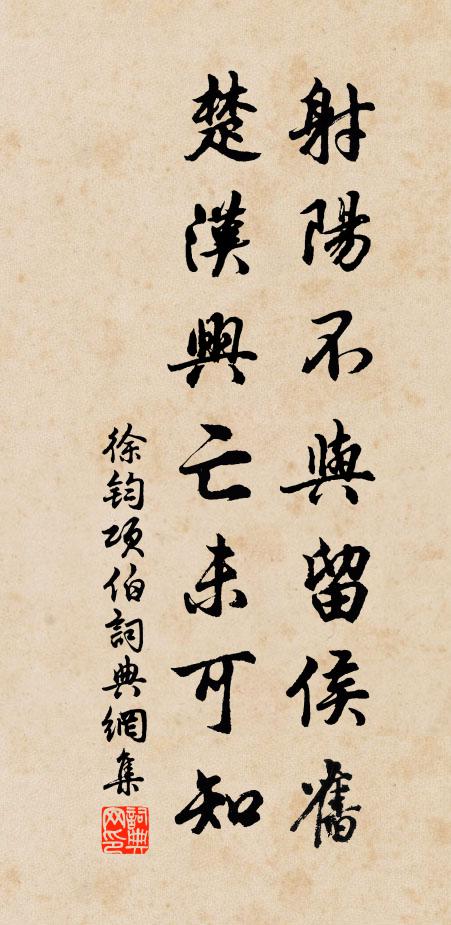 射陽不與留侯舊
楚漢興亡未可知
徐鈞項伯詞典網集
詞典網印